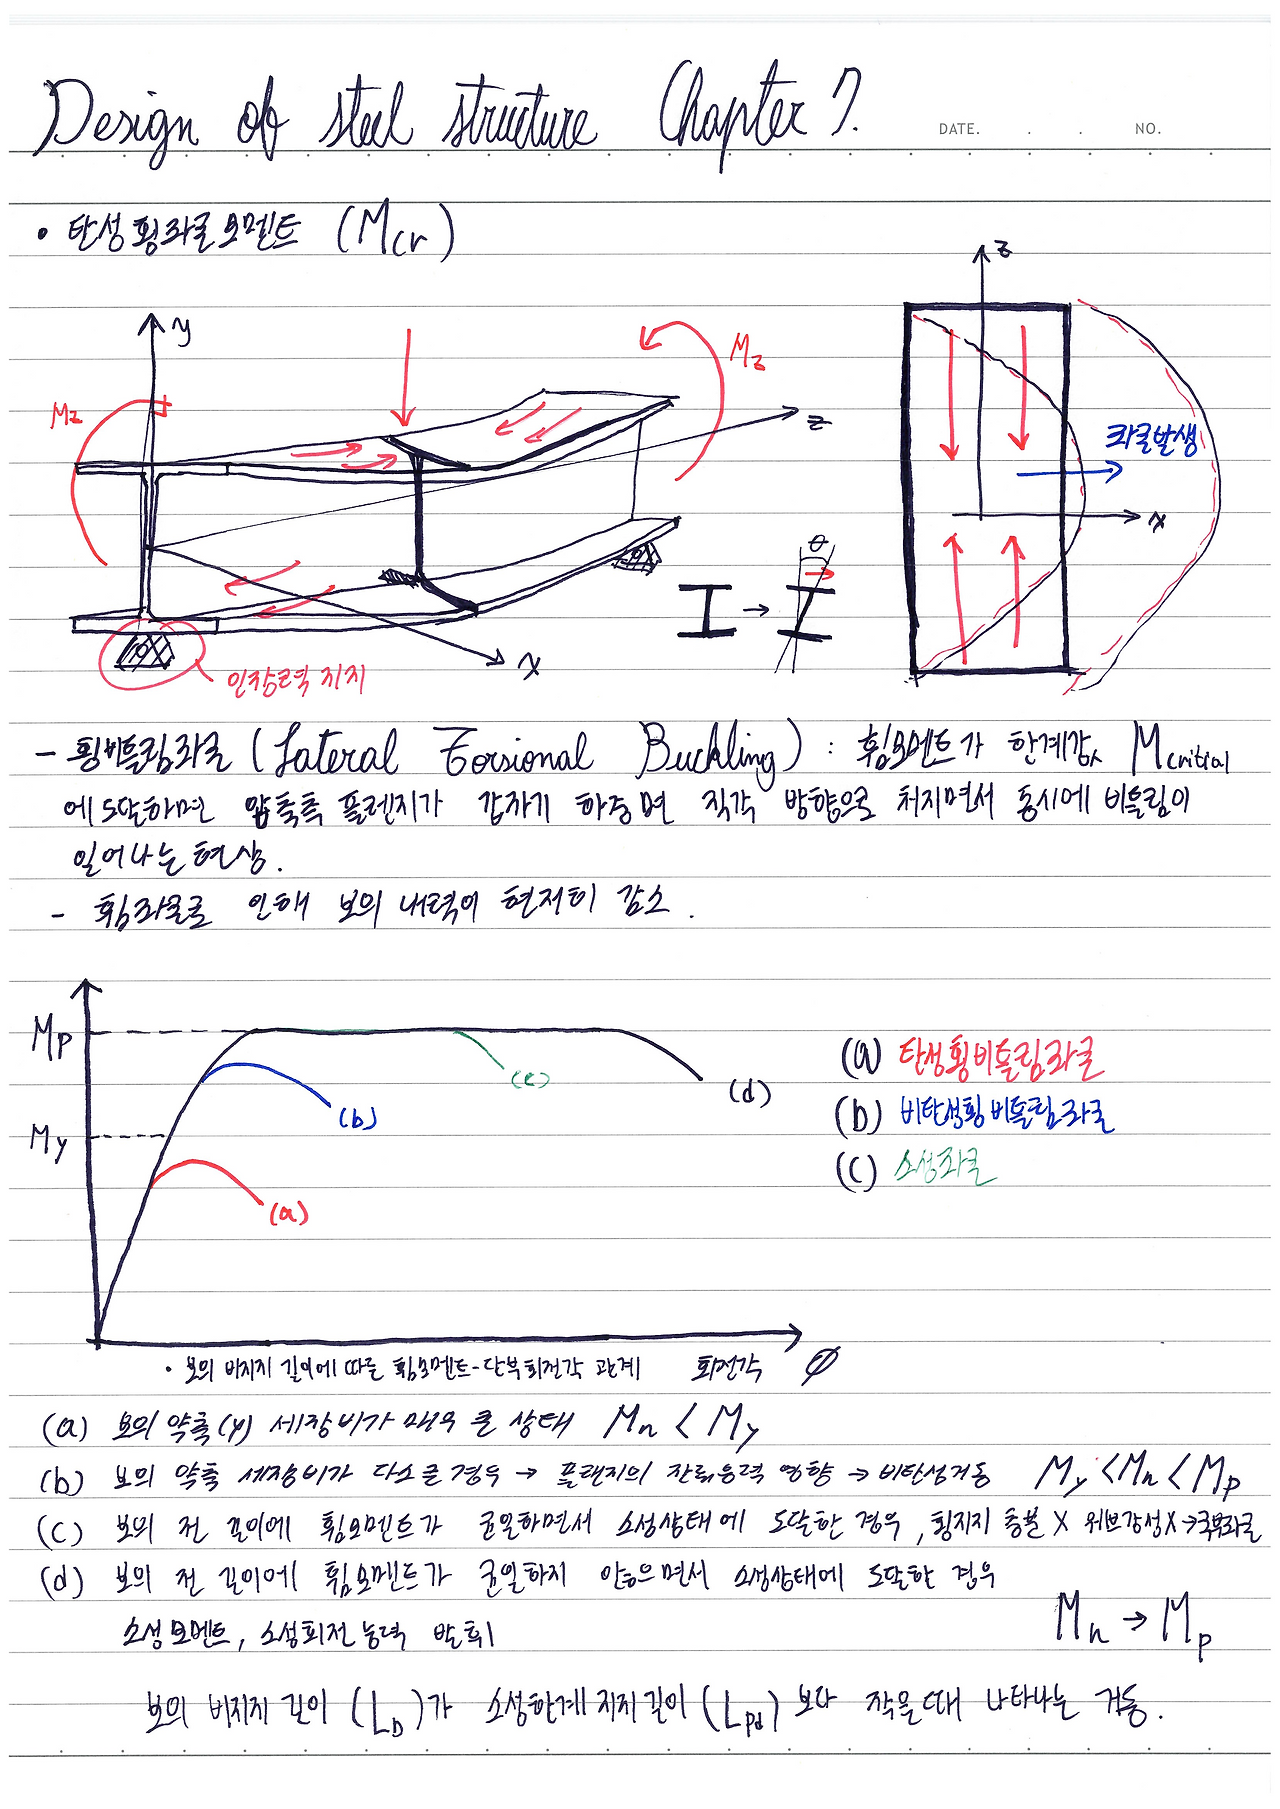 Design of steel structure Chapter 7.
DATE. . . NO.
• 탄성횡좌굴모멘트 (Mcr)
y
Mz
Mz
z
x
인장력 지지
θ
z
좌굴발생
x
- 횡비틀림좌굴 (Lateral Torsional Buckling) : 휨모멘트가 한계값 Mcritial
에 도달하면 압축측 플렌지가 갑자기 하중면 직각 방향으로 처지면서 동시에 비틀림이
일어나는 현상.
- 휨좌굴로 인해 보의 내력이 현저히 감소.
Mp
My
(a)
(b)
(c)
(d)
(a) 탄성횡비틀림좌굴
(b) 비탄성횡비틀림좌굴
(c) 소성좌굴
• 보의 비지지 길이에 따른 휨모멘트-단부회전각 관계 회전각 ∅
(a) 보의 약축(y) 세장비가 매우 큰 상태 Mn < My
(b) 보의 약축 세장비가 다소 큰 경우 → 플랜지의 잔류응력 영향 → 비탄성거동 My < Mn < Mp
(c) 보의 전 길이에 휨모멘트가 균일하면서 소성상태에 도달한 경우, 횡지지 충분 X 웨브강성 X → 국부좌굴
(d) 보의 전 길이에 휨모멘트가 균일하지 않으면서 소성상태에 도달한 경우
소성모멘트, 소성회전능력 발휘 Mn → Mp
보의 비지지 길이 (Lb)가 소성한계 지지길이 (Lpd) 보다 작을때 나타나는 거동.